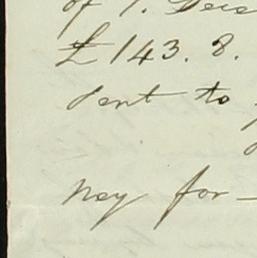 of 1. Dec
£143. 8.
sent to
Nay for –